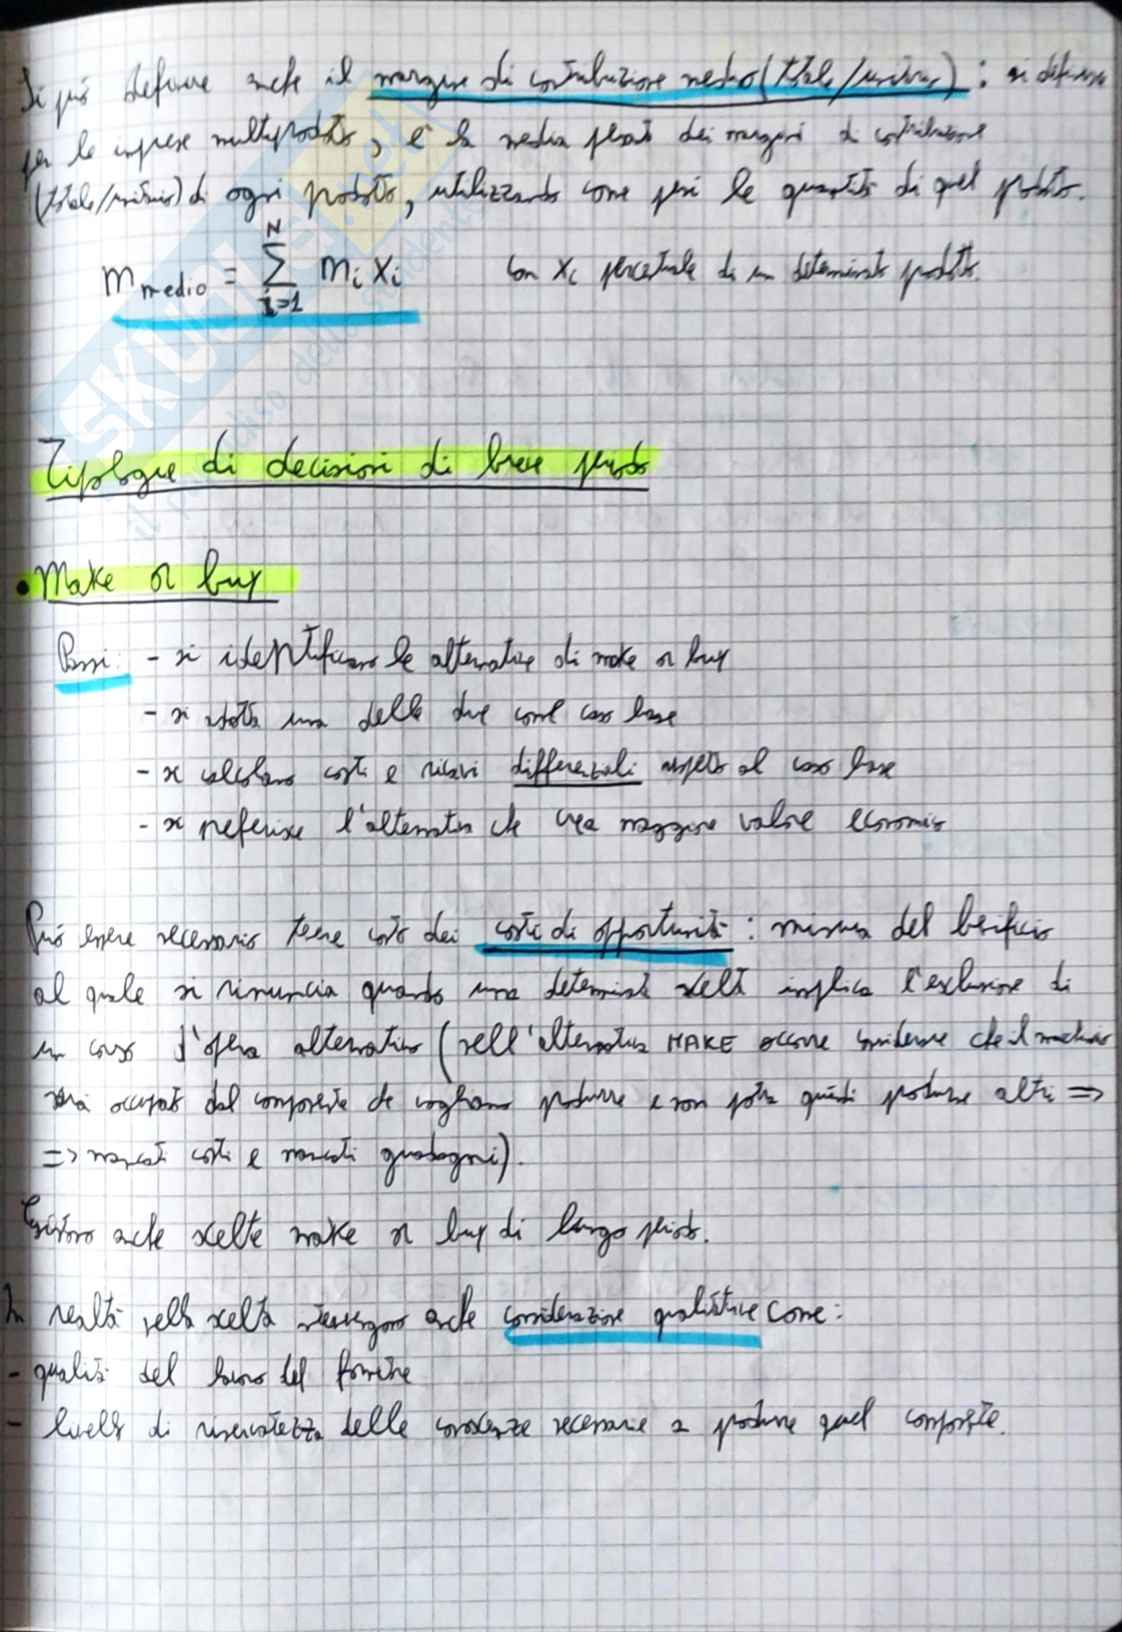 Si può definire anche il margine di contribuzione medio (totale/unitario): si definisce
per le imprese multiprodotto, è la media pesata dei margini di contribuzione
(totale/unitario) di ogni prodotto, utilizzando come pesi le quantità di quel prodotto.
m medio = N Σ i=1 mi xi con xi percentuale di un determinato prodotto.
Tipologie di decisioni di breve periodo
• Make or buy
Passi: - si identificano le alternative di make or buy
- si adotta una delle due come caso base
- si calcolano costi e ricavi differenziali rispetto al caso base
- si preferisce l'alternativa che crea maggiore valore economico
Può essere necessario tenere conto dei costi di opportunità: misura del beneficio
al quale si rinuncia quando una determinata scelta implica l'esclusione di
un corso d'opera alternativo (nell'alternativa MAKE occorre considerare che il macchinario
sarà occupato dal componente che vogliamo produrre e non potrà quindi produrre altri =>
=> mancati costi e mancati guadagni).
Esistono anche scelte make or buy di lungo periodo.
In realtà nella scelta intervengono anche considerazione qualitative come:
- qualità del lavoro del fornitore
- livello di riservatezza delle conoscenze necessarie a produrre quel componente.
SKUOLA.net